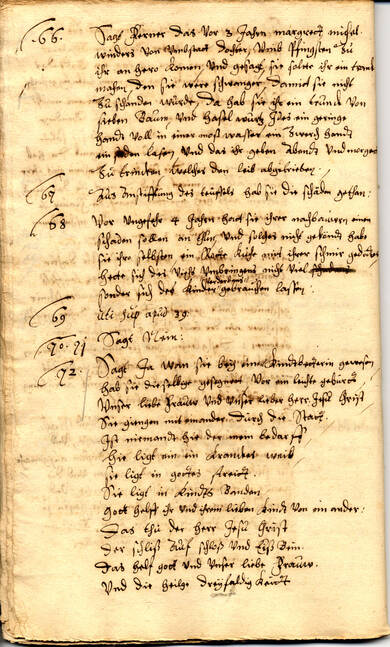 66. Sagt Ferner das vor 3 Jahren margrett
winders von Umbstatt dochter, Umb Pfingsten zu
ihr an hero komen, und gesagt sie solte ihr ein tranck
machen den sie were schwanger, damit sie nicht
zu schanden würde. Da hab sie ihr ein trunck von
sieben Baum und Hasel wurtz Jdes ein geringe
handt voll in einer moß wasser ein zwerch handt
einsieden lasen, und das ihr geben Abendt und morgens
zu trincken welches den leib abgetrieben.
67 Aus anstifftung des teuffels hab sie die schäden gethan:
68 Vor Ungefehr 4 Jahren hett sie ihrer nachbaurin einen
schaden sollen an thun, und solches nicht gekönt habe
sie ihr selbsten ein Kuhe mit ihrer schmir
hette sich des Viehs Umbringens nicht viel
sonder sich des Kinder verderbens gebrauchen lassen.
69 Uti sup. art. 39.
70. 71 Sagt Nein:
72. Sagt Ja wan sie bey einer Kindtbetterin gewesen
hab sie dieselbige gesegnet, Vor ein leichte geburtt,
Unser liebe Frauw und Unser lieber herr Jesu Christ
Sie giengen mit einander durch die Statt.
Ist niemandt hie der mein bedarff
hie ligt ein ein kranckes weib
sie ligt in gottes
Sie ligt in Kindts Banden
Gott helff ihr und ihrem lieben Kindt von ein ander:
Das thu der herr Jesu Christ
der schliß Auff schloß und Bein.
das helf gott und Unser liebe Frauw.
Und die heilge dreyfaldig